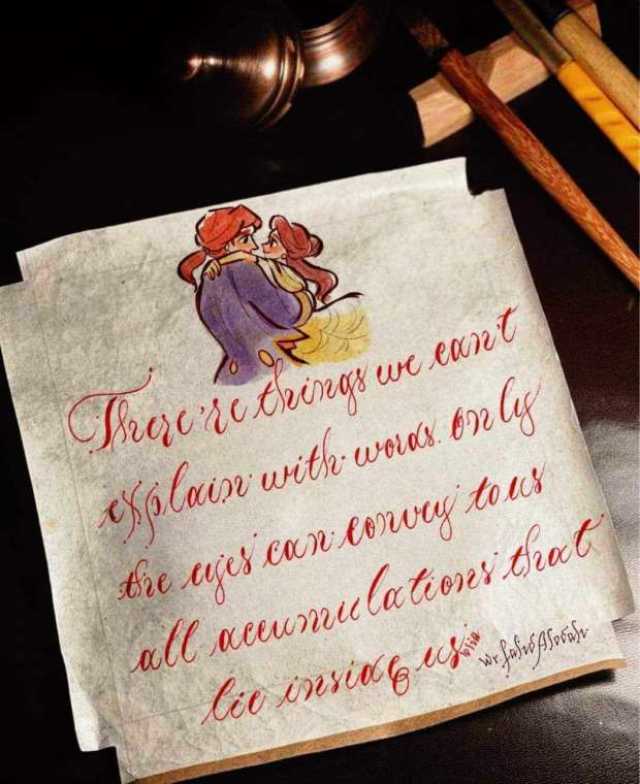 There're things we can't
explain with words. Only
the eyes can convey to us
all accumulations that
lie inside us
Wr.